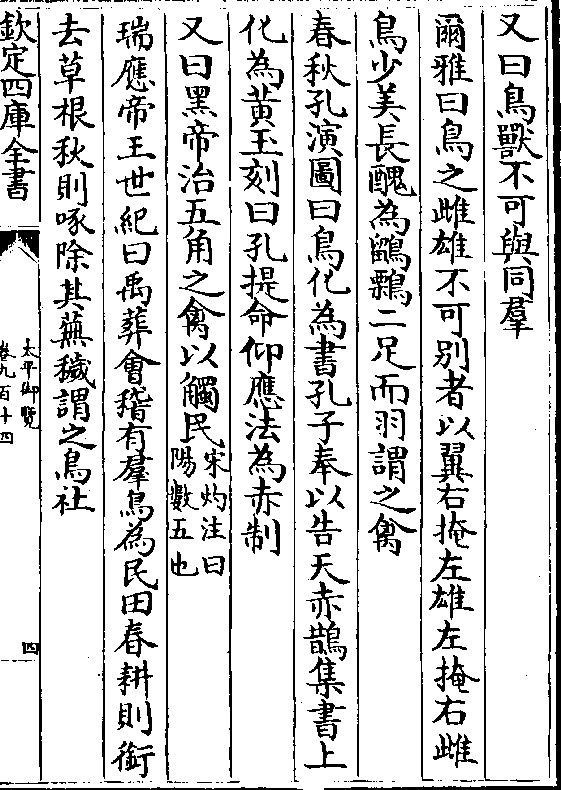 又曰鳥獸不可與同羣
爾雅曰鳥之雌雄不可别者以翼右掩左雄左掩右雌
鳥少美長醜為鶹鷅二足而羽謂之禽
春秋孔演圖曰鳥化為書孔子奉以告天赤鵲集書上
化為黃玉刻曰孔提命仰應法為赤制
又曰黑帝治五角之禽以觸民宋灼注曰陽數五也
瑞應帝王世紀曰禹葬會稽有羣鳥為民田春耕則銜
去草根秋則啄除其蕪穢謂之鳥社
欽定四庫全書
太平御覽
卷九百十四
四